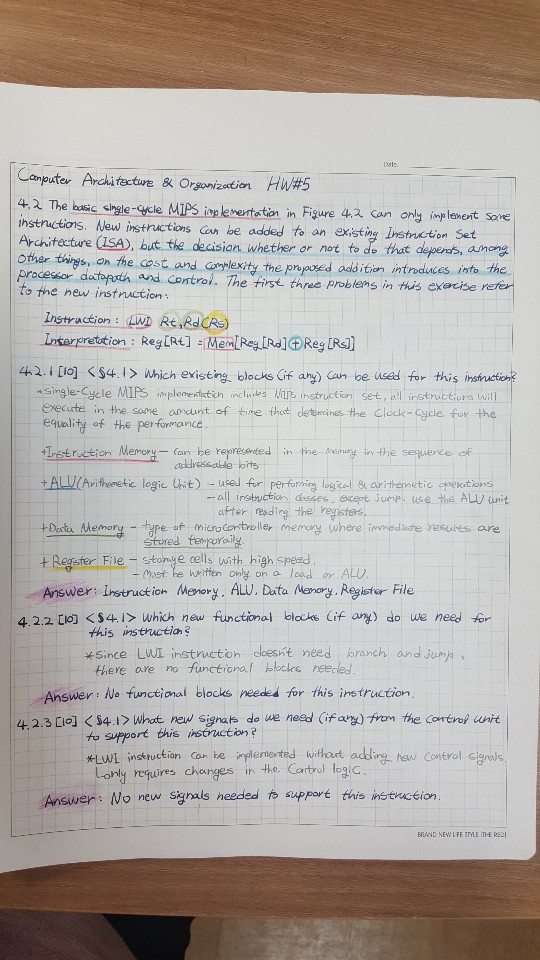 Date.
Computer Architecture & Organization HW#5
4.2 The basic single-cycle MIPS implementation in Figure 4.2 can only implement some
instructions. New instructions can be added to an existing Instruction Set
Architecture (ISA), but the decision whether or not to do that depends, among
other things, on the cost and complexity the proposed addition introduces into the
processor datapath and control. The first three problems in this exercise refer
to the new instruction:
Instruction: LWI Rt, Rd(Rs)
Interpretation: Reg[Rt] = Mem[Reg[Rd]+Reg[Rs]]
4.2.1 [10] <$4.1> Which existing blocks (if any) can be used for this instruction?
*Single-Cycle MIPS implementation includes MIPS instruction set, all instructions will
execute in the same amount of time that determines the Clock-Cycle for the
equality of the performance.
+Instruction Memory - Can be represented in the memory in the sequence of
addressable bits
+ALU(Arithemetic logic Unit) - used for performing logical & arithemetic operations
- all instruction classes, except jump, use the ALU unit
after reading the registers.
+Data Memory - type of microcontroller memory where immediate results are
stored temporaily.
+ Register File - storage cells with high speed.
- Must be written only on a load or ALU.
Answer: Instruction Memory, ALU, Data Memory, Register File
4.2.2 [10] <$4.1> Which new functional blocks (if any) do we need for
this instruction?
*Since LWI instruction doesn't need branch and jump,
there are no functional blocks needed.
Answer: No functional blocks needed for this instruction.
4.2.3 [10] <$4.1> What new signals do we need (if any) from the control unit
to support this instruction?
*LWI instruction can be implemented without adding new control signals
only requires changes in the Control logic.
Answer: No new signals needed to support this instruction.
BRAND NEW LIFE STYLE [THE RED]